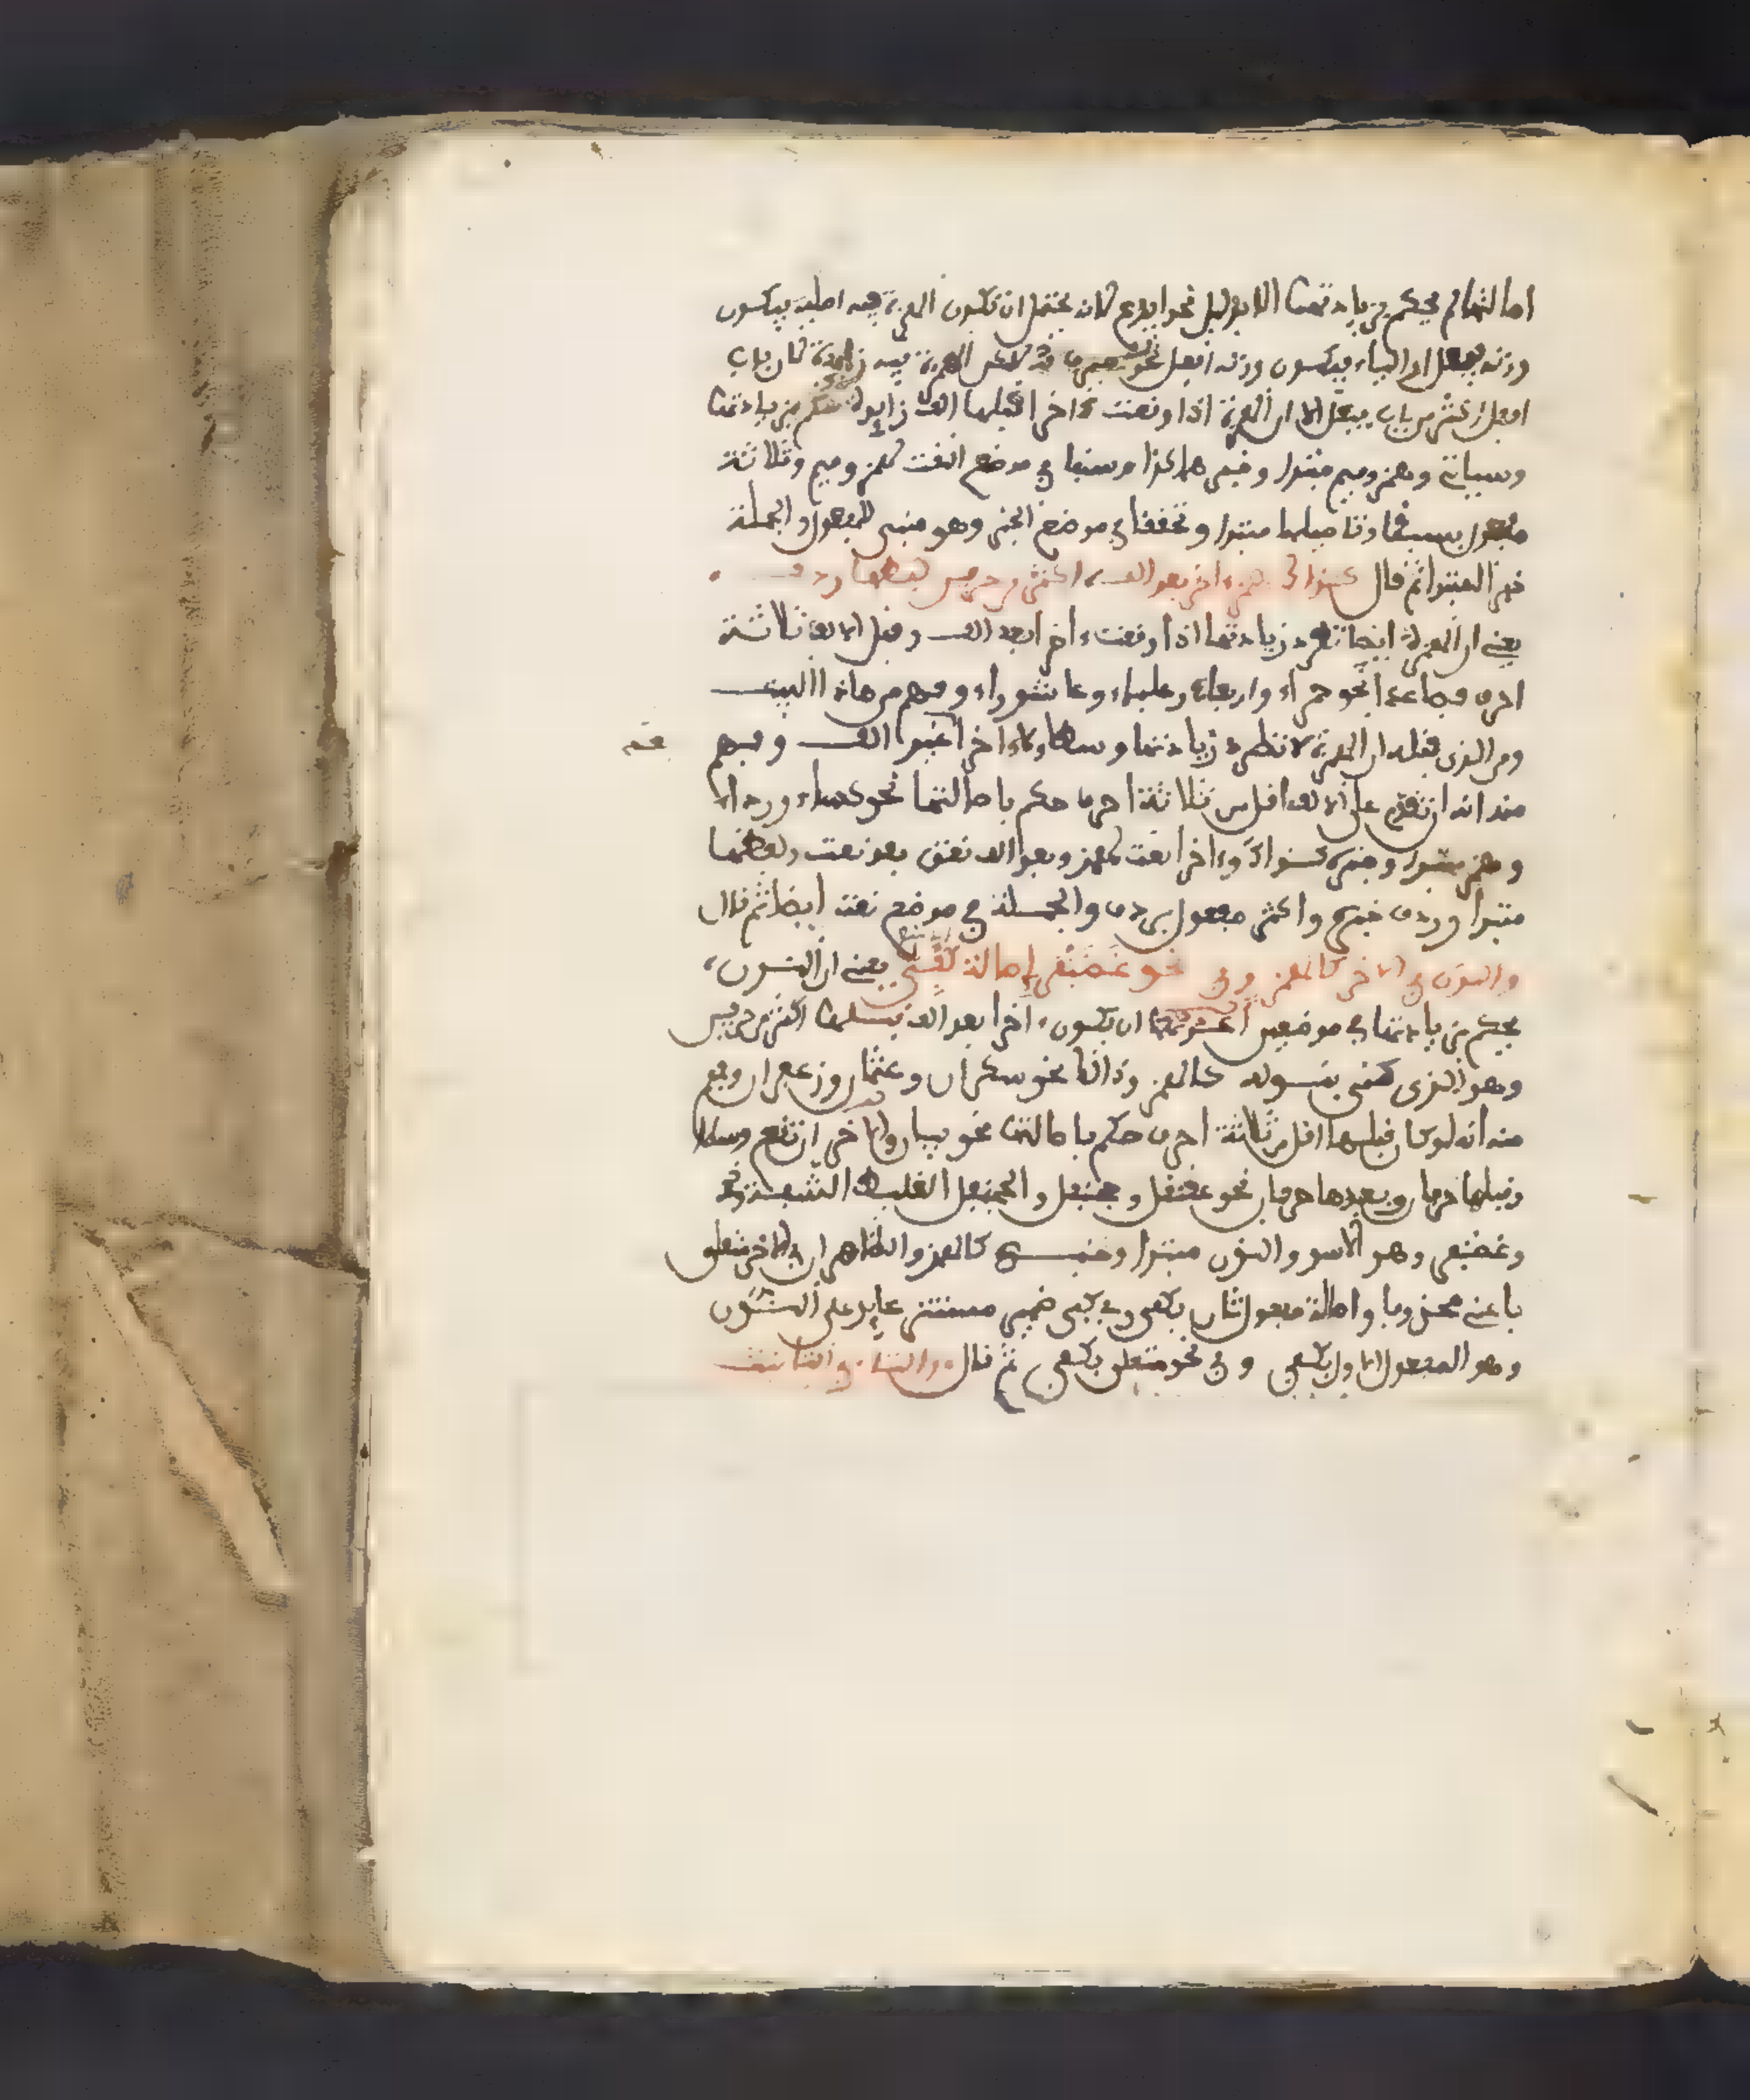 اصالتها لم يحكم بزيادتها الا بدليل نحو ايدع لانه يحتمل ان تكون الهمزة فيه اصلية فيكون
وزنه فيعل او الياء فيكون وزنه افعل الهمزة فيه زائدة لان باب
افعل اكثر من باب فيعل الا ان الهمزة اذا وقعت ءاخرا قبلها الف زايدة حكم بزيادتها
وسياتي وهمز وميم مبتدا وخبره هاكذا وسبقا في موضع النعت لهمز وميم وثلاثة
مفعول بسبقا وتاصيلها مبتدا وتحققا في موضع الخبر وهو مبني للمفعول والجملة
خبر المبتدا ثم قال كذاك همز ءاخر بعد الف اكثر من حرفين لفظها ردف
يعني ان الهمزة ايضا تطرد زيادتها اذا وقعت ءاخرا بعد الف وقبل الالف ثلاثة
احرف فصاعدا نحو حمراء واربعاء وعلباء وعاشوراء وفهم من هاذا البيت
ومن الذي قبله ان الهمزة لا تطرد زيادتها وسطا ولا ءاخرا غير الف وفهم
منه انه ان تقدم على الالف اقل من ثلاثة احرف حكم باصالتها نحو كساء ورداء
وهمز مبتدا وخبره كذاك وءاخر نعت لهمز وبعد الف نعت بعد نعت ولفظها
مبتدا وردف خبره واكثر مفعول بردف والجملة في موضع نعت ايضا ثم قال
والنون في الاخر كالهمز وفي نحو غضنفر اصالة كفي يعني ان النون
يحكم بزيادتها في موضعين احدهما ان يكون ءاخرا بعد الف قبلها اكثر من حرفين
وهو الذي عنى بقوله كالهمز وذالك نحو سكران وعثمان وزعفران وفهم
منه انه لو كان قبلها اقل من ثلاثة احرف حكم باصالتها نحو بيان والاخر ان تقع وسطا
وقبلها حرفان وبعدها حرفان نحو عقنقل وجحنفل والجحنفل الغليظ الشفة
وغضنفر وهو الاسد والنون مبتدا وخبره كالهمز والظاهر ان في الاخر متعلق
باعني محذوفا واصالة مفعول ثان بكفي وفي كفي ضمير مستتر عايد على النون
وهو المفعول الاول بكفي وفي نحو متعلق بكفي ثم قال والتاء في التانيث